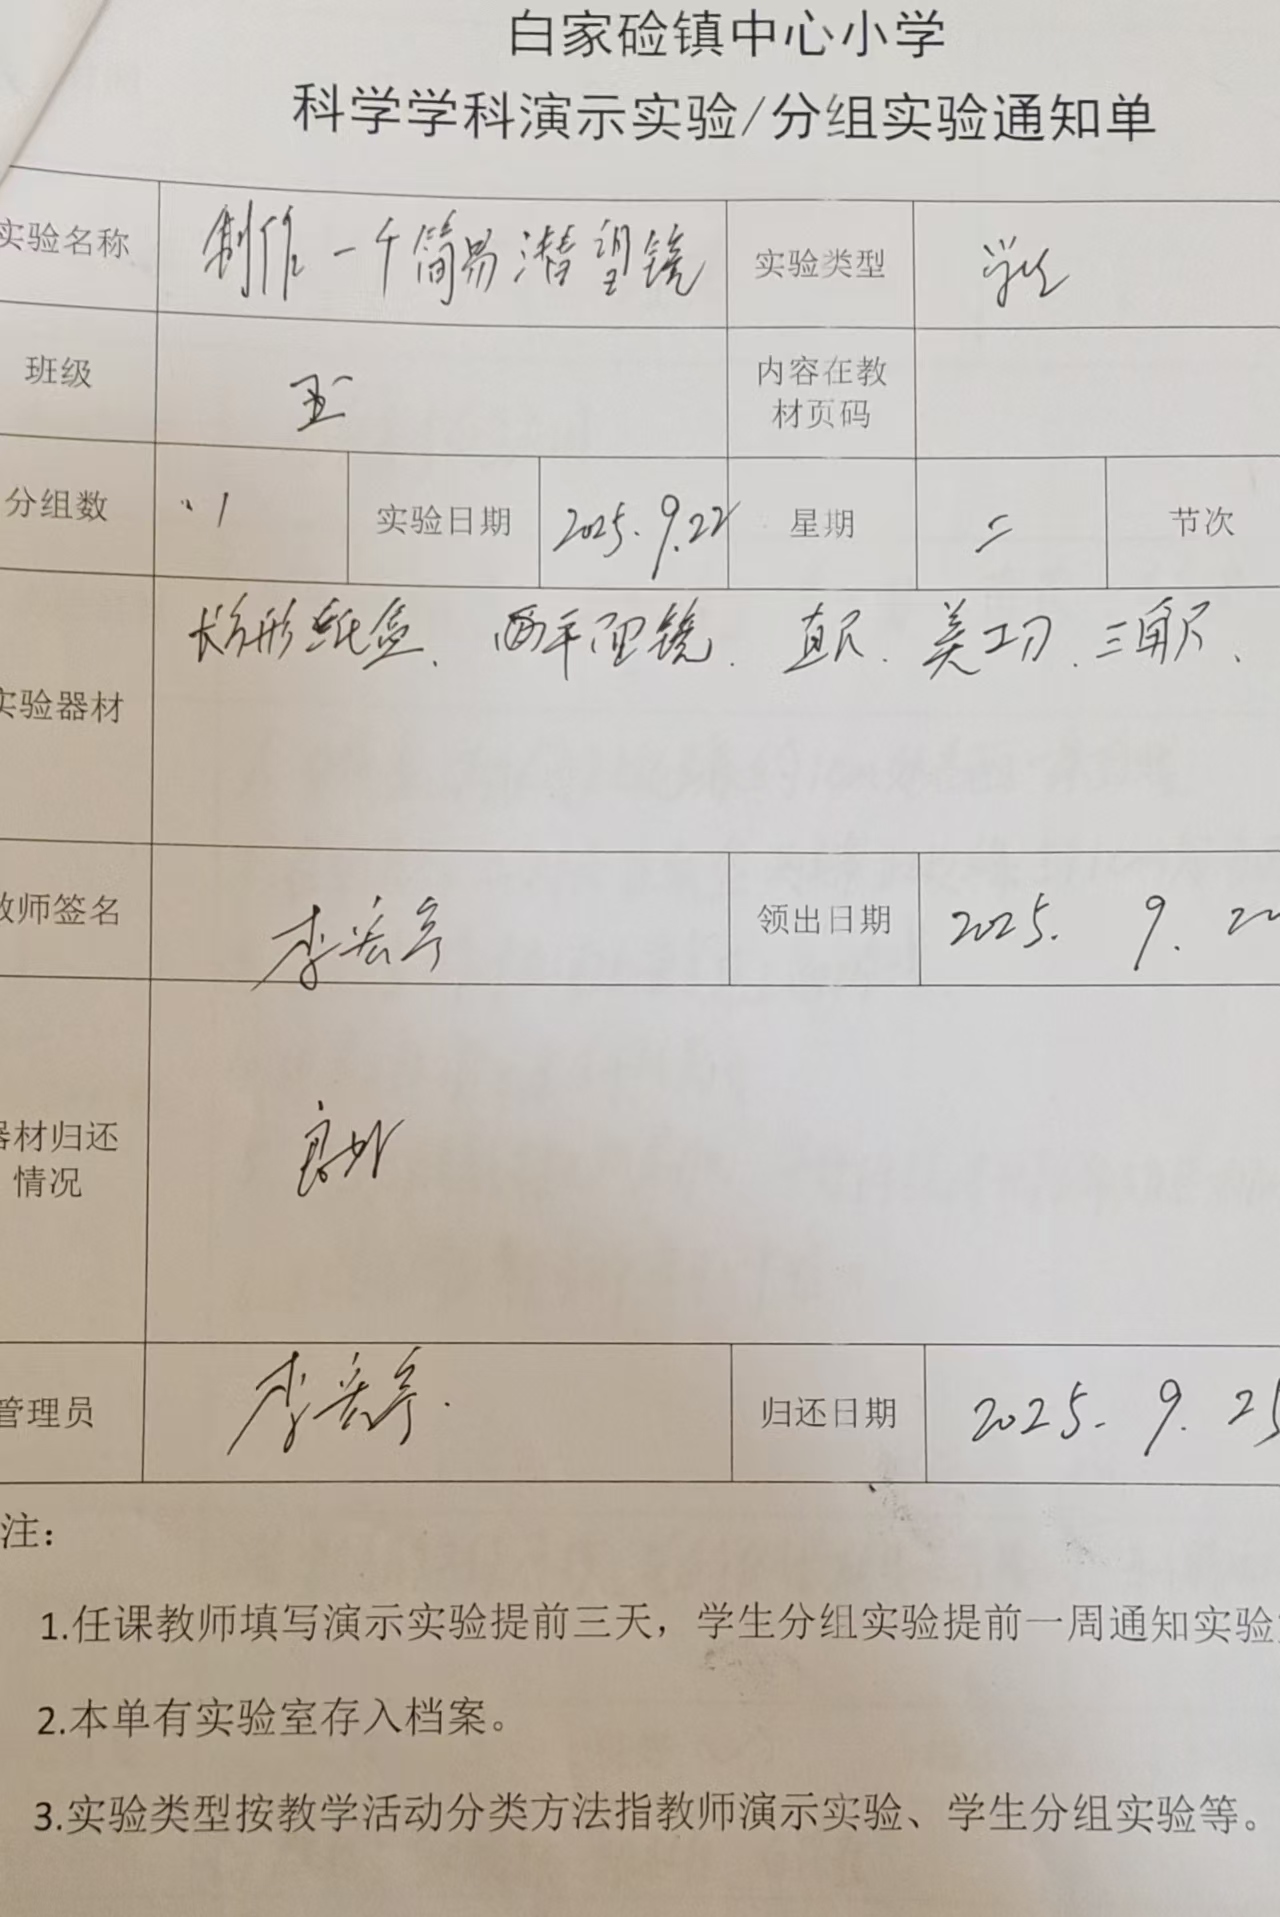 白家硷镇中心小学
科学学科演示实验/分组实验通知单
实验名称 制作一个简易潜望镜 实验类型 学生
班级 内容在教材页码
分组数 1 实验日期 2025.9.22 星期 二 节次
实验器材 长方形纸盒、两平面镜、直尺、美工刀、三角尺、
教师签名 李 领出日期 2025. 9. 2
器材归还情况 良好
管理员 李 归还日期 2025. 9. 25
注:
1.任课教师填写演示实验提前三天，学生分组实验提前一周通知实验
2.本单有实验室存入档案。
3.实验类型按教学活动分类方法指教师演示实验、学生分组实验等。